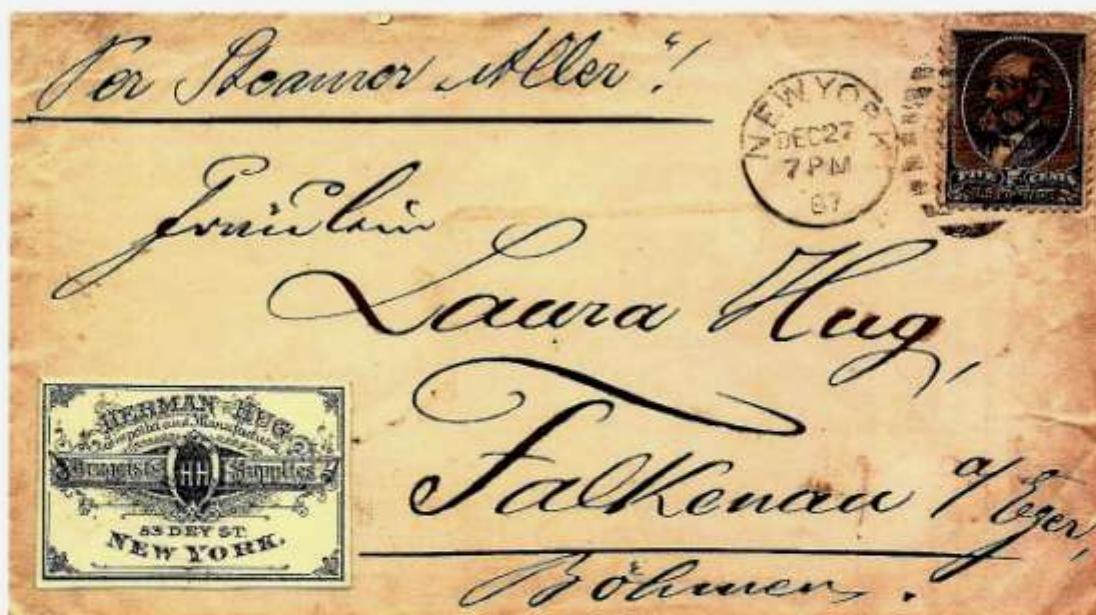 Per Steamer Aller"!
NEW YORK
DEC 27
7 PM
87
Fräulein
Laura Hug,
Falkenau a/Eger,
Böhmen.
HERMAN HUG
Importer and Manufacturer
Druggists HH Supplies
53 DEY ST.
NEW YORK.
FIVE 5 CENTS